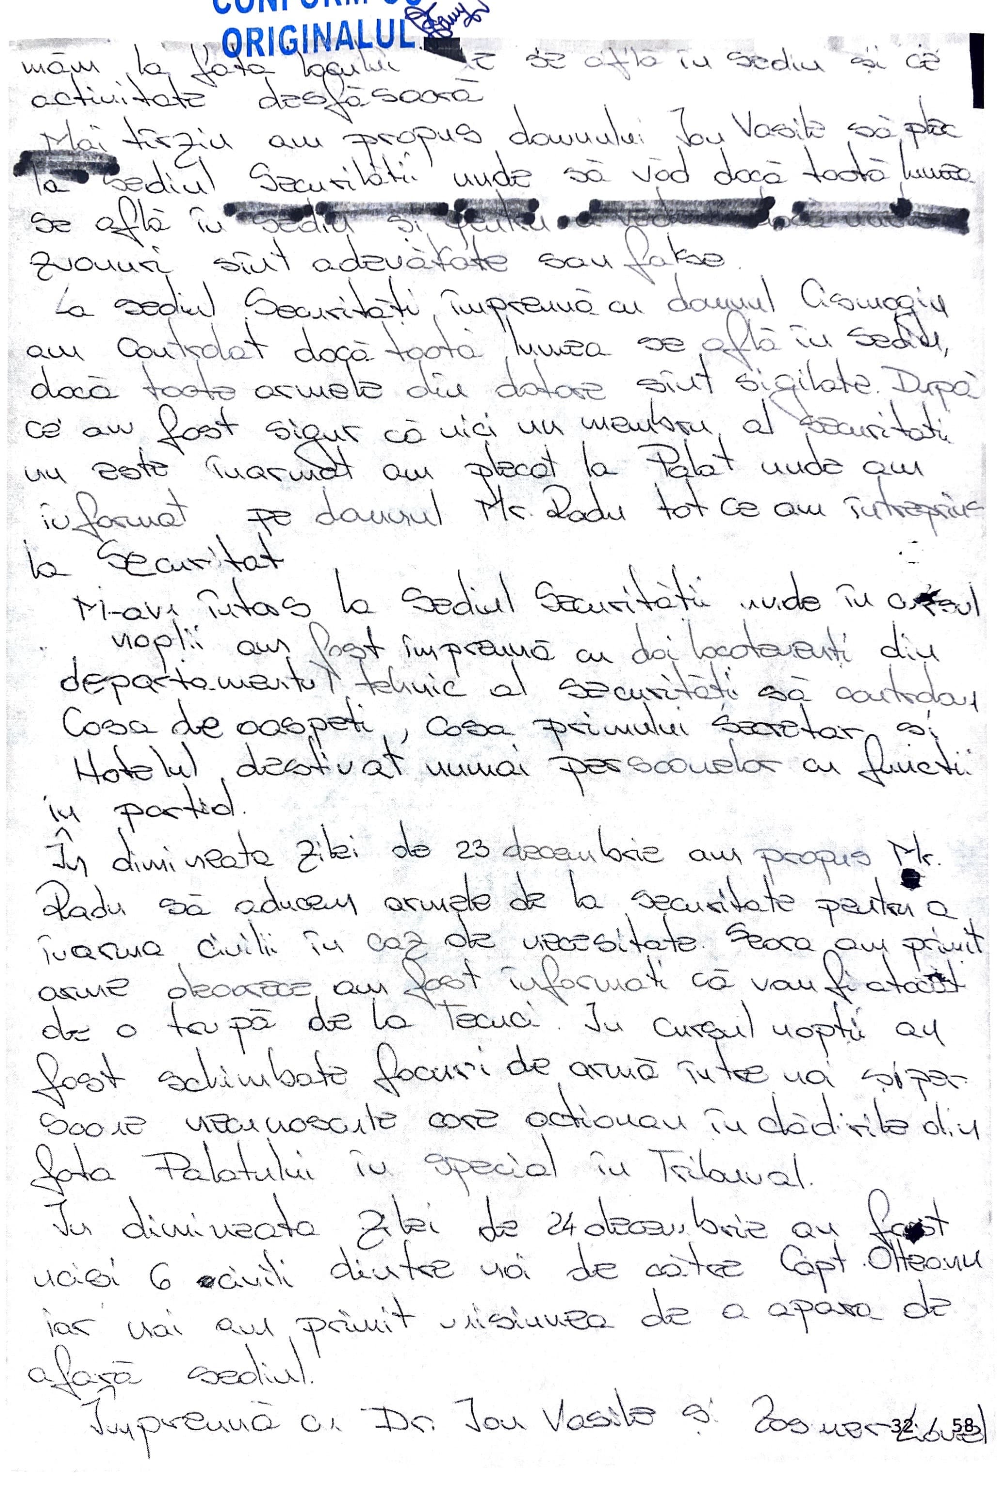 CONFORM CU
ORIGINALUL
măm la fața locului se află în sediu și ce
activitate desfășoară
Mai tîrziu am propus domnului Ion Vasile să plec
la sediul Securității unde să văd dacă toată lumea
se află în sediu si pentru a vedea dacă
zvonuri sînt adevărate sau false.
La sediul Securității, împreună cu domnul Cismagiu
am controlat dacă toată lumea se află în sediu,
dacă toate armele din dotare sînt sigilate. După
ce am fost sigur că nici un membru al securitatii
nu este înarmat am plecat la Palat unde am
informat pe domnul Mr. Radu tot ce am întreprins
la Securitat
M-am întors la Sediul Securității unde în cursul
nopții am fost împreună cu doi locotenenti din
departamentul tehnic al securității să controlam
Casa de oaspeti, casa primului secretar si
Hotelul destinat numai persoanelor cu functii
in partid.
În dimineata zilei de 23 decembrie am propus Mr.
Radu să aducem armele de la securitate pentru a
înarma civilii în caz de necesitate. Seara am primit
arme deoarece am fost informati că vom fi atacat
de o trupă de la Tecuci. In cursul nopții au
fost schimbate focuri de armă între noi și per-
soane necunoscute care actionau în clădirile din
fata Palatului în special în Tribunal.
In dimineata zilei de 24 decembrie au fost
ucisi 6 civili dintre noi de către Capt. Olteanu
iar noi am primit misiunea de a apara de
afară sediul.
Împreună cu Dr. Ion Vasile și
32 / 58